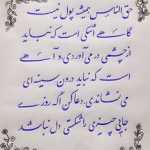 حق الناس همیشه پول نیست
گاهے اشکی است که نباید
از چشمی در می‌آوردی، و آهے
است که نباید درون سینه‌ای
می‌نشاندی، دعا کن اگر روزے
جایی چیزی را شکستی دل نباشد